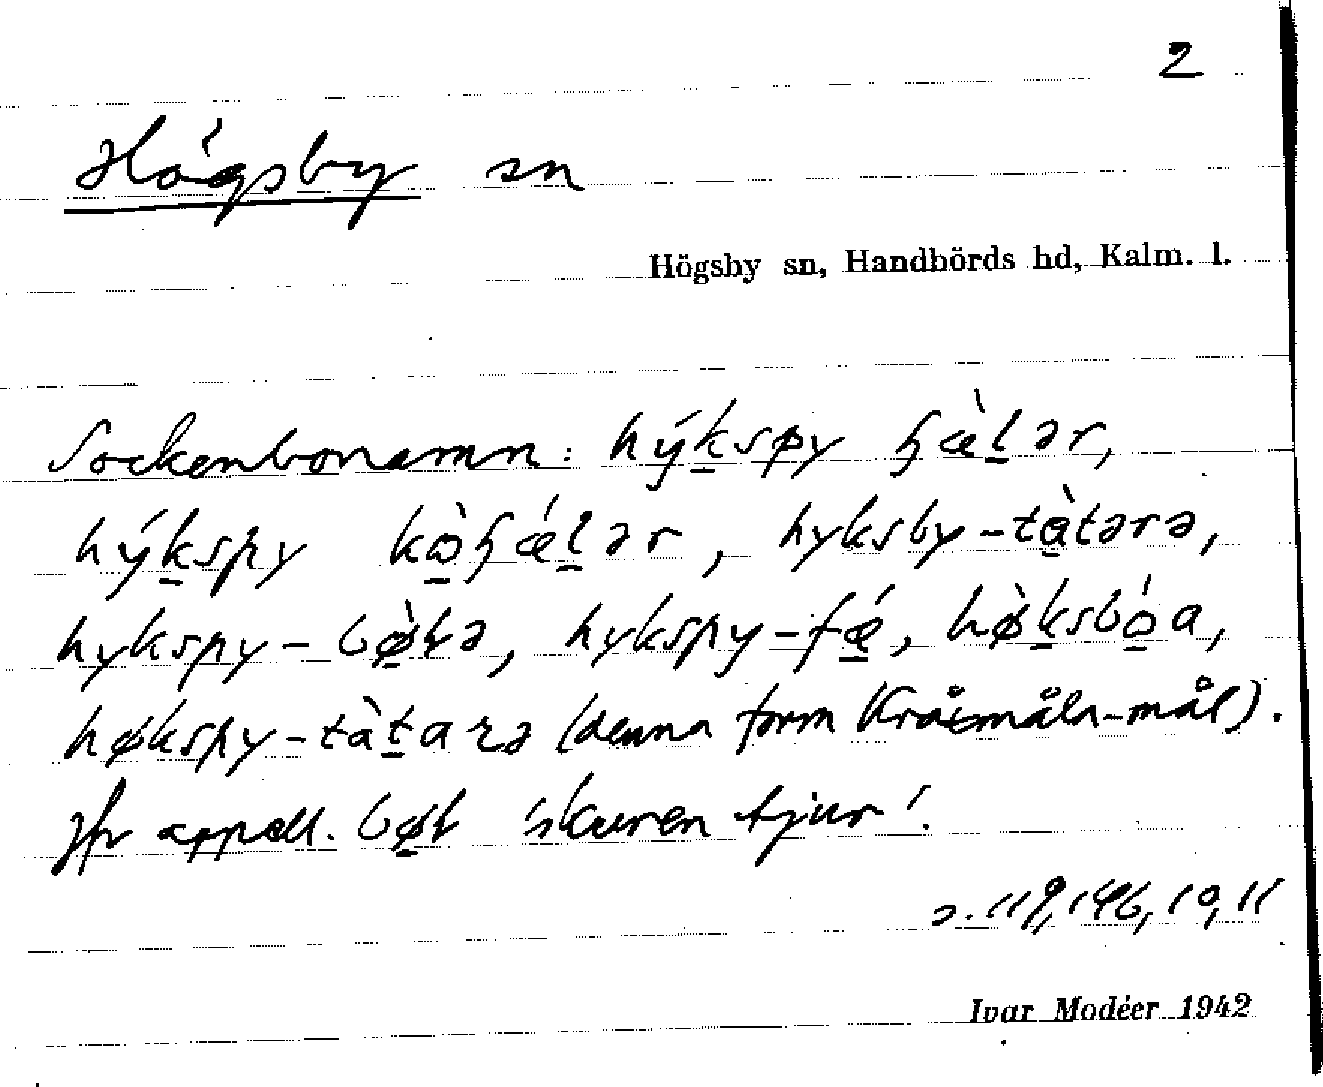 2
Högsby sn
Högsby sn, Handbörds hd, Kalm. l.
Sockenbonamn: hýk̠spy ɧæ̀l̠ər,
hýk̠spy kò̠ɧǽl̠ər, hyksby-tà̠tərə,
hykspy-bø̠̀tə, hykspy-fǽ̠, hø̀k̠sbó̠a,
høkspy-tàt̠arə (denna form Kråsmåla-mål).
Jfr appell. bø̠t 'skuren tjur'.
s. 119, 146, 10, 11
Ivar Modéer 1942